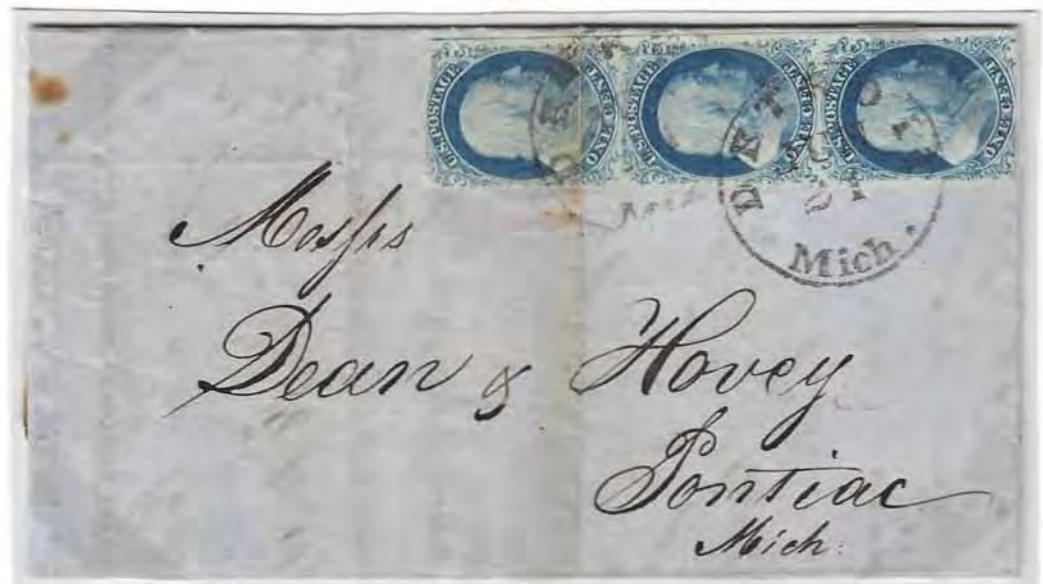 U.S. POSTAGE ONE CENT
U.S. POSTAGE ONE CENT
U.S. POSTAGE ONE CENT
Mich.
Messrs
Dean & Hovey
Pontiac
Mich: